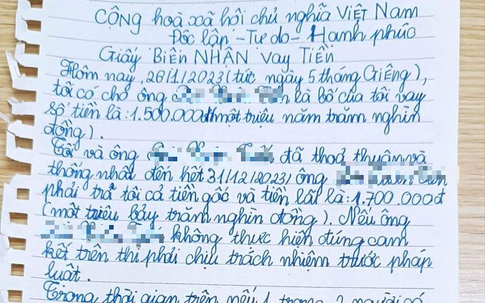 CỘNG hoà xã hội chủ nghĩa VIỆT Nam
Độc lập - Tự do - Hạnh phúc
Giấy BIÊN NHẬN Vay TIỀN
Hôm nay, 26/1/2023 (tức ngày 5 tháng Giêng),
tôi có cho ông là bố của tôi vay
số tiền là: 1.500.000đ (một triệu năm trăm nghìn
đồng).
Tôi và ông đã thoả thuận và
thống nhất đến hết 31/12/2023, ông
phải trả tôi cả tiền gốc và tiền lãi là: 1.700.000đ
(một triệu bảy trăm nghìn đồng). Nếu ông
không thực hiện đúng cam
kết trên thì phải chịu trách nhiệm trước pháp
luật.
Trong thời gian trên nếu 1 trong 2 người có